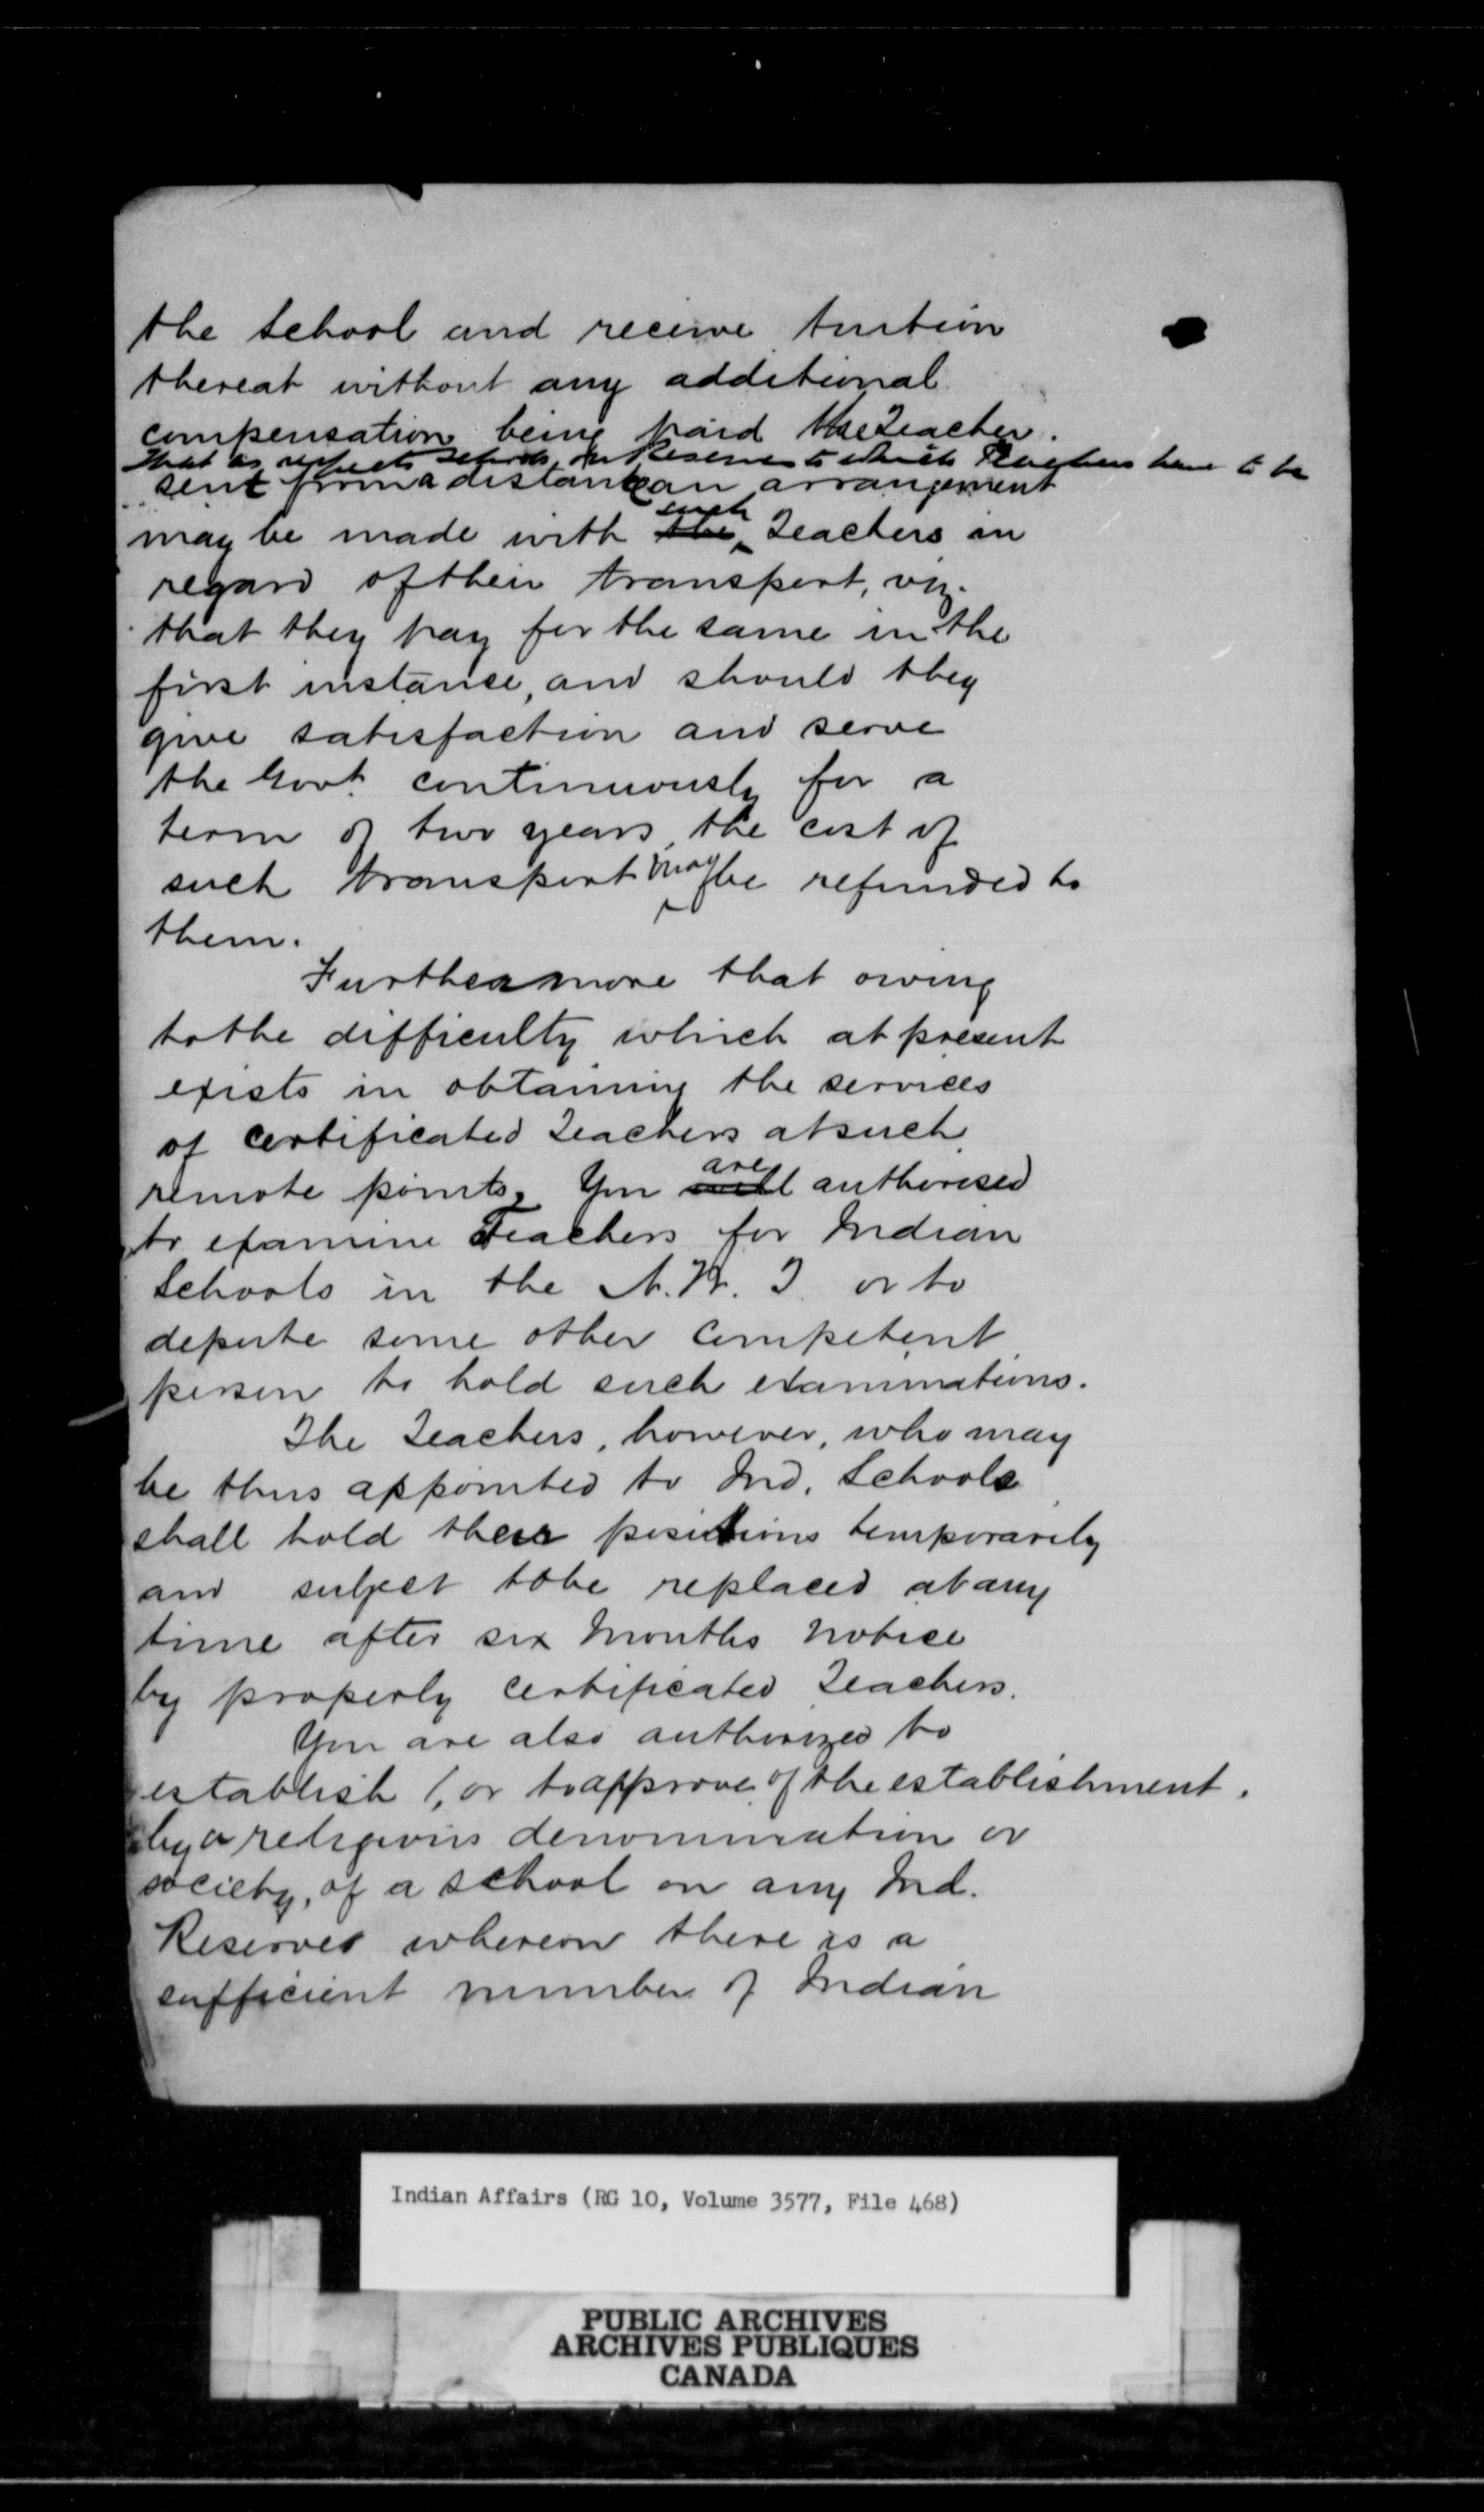 the School and receive tuition
thereat without any additional
compensation being paid the Teacher.
That as respects Schools on Reserves to which Teachers have to be
sent from a distance an arrangement
may be made with the such Teachers in
regard of their transport, viz.
that they pay for the same in the
first instance, and should they
give satisfaction and serve
the Govt. continuously for a
term of two years, the cost of
such transport may be refunded to
them.
Furthermore that owing
to the difficulty which at present
exists in obtaining the services
of certificated Teachers at such
remote points, You will are authorised
to examine Teachers for Indian
Schools in the N.W. T. or to
depute some other competent
person to hold such examinations.
The Teachers, however, who may
be thus appointed to Ind. Schools
shall hold their positions temporarily
and subject to be replaced at any
time after six Months Notice
by properly certificated Teachers.
You are also authorized to
establish (, or to approve of the establishment.
by a religious denomination or
society, of a school on any Ind.
Reserves whereon there is a
sufficient number of Indian
Indian Affairs (RG 10, Volume 3577, File 468)
PUBLIC ARCHIVES
ARCHIVES PUBLIQUES
CANADA